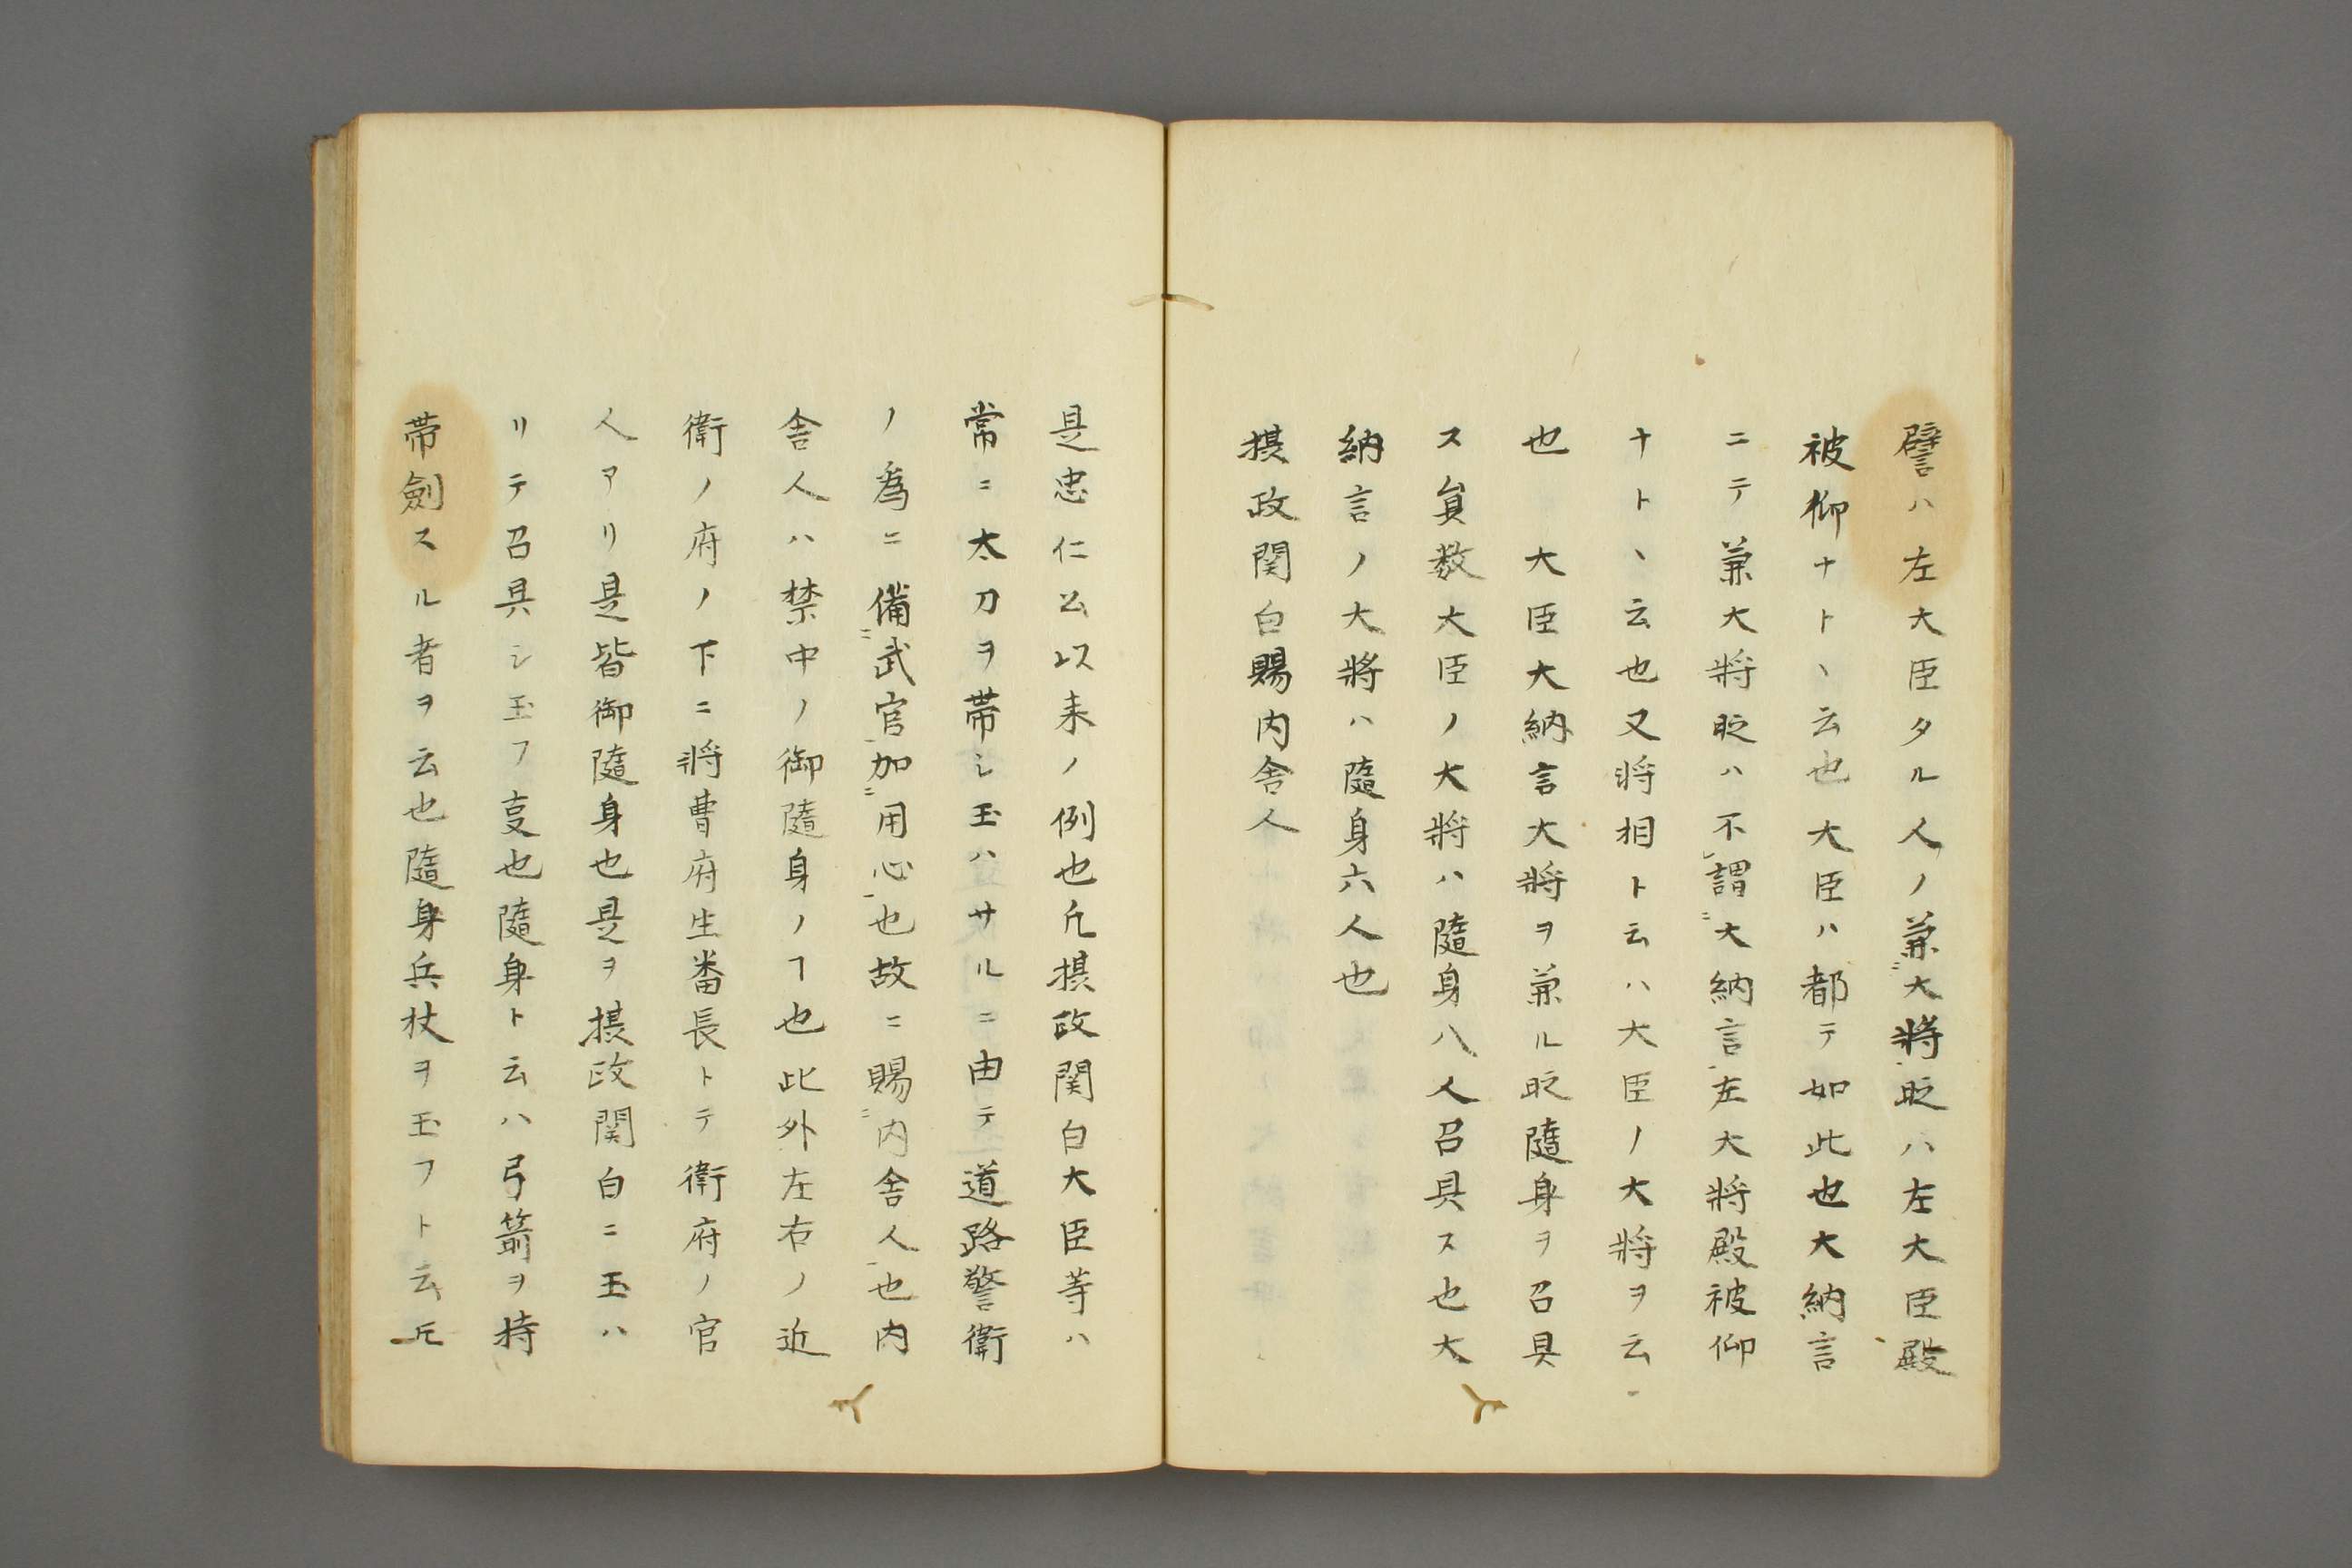 譬ハ左大臣タル人ノ兼ニ大将一眨ハ左大臣殿
被仰ナトヽ云也大臣ハ都テ如此也大納言
ニテ兼大将眨ハ不レ謂ニ大納言一左大将殿被仰
ナトヽ云也又将相ト云ハ大臣ノ大将ヲ云
也　大臣大納言大将ヲ兼ル眨隨身ヲ召具
ス負数大臣ノ大将ハ隨身八人召具ス也大
納言ノ大将ハ隨身六人也
摂政関白賜内舎人
是忠仁公以来ノ例也凢摂政関白大臣等ハ
常ニ太刀ヲ帯シ玉ハサルニ由テ道路警衛
ノ為ニ備ニ武官一加ニ用心一也故ニ賜ニ内舎人一也内
舎人ハ禁中ノ御隨身ノヿ也此外左右ノ近
衛ノ府ノ下ニ将曹府生番長トテ衛府ノ官
人アリ是皆御隨身也是ヲ摂政関白ニ玉ハ
リテ召具シ玉フ㕝也隨身ト云ハ弓箭ヲ持
帯劍スル者ヲ云也隨身兵杖ヲ玉フト云凢